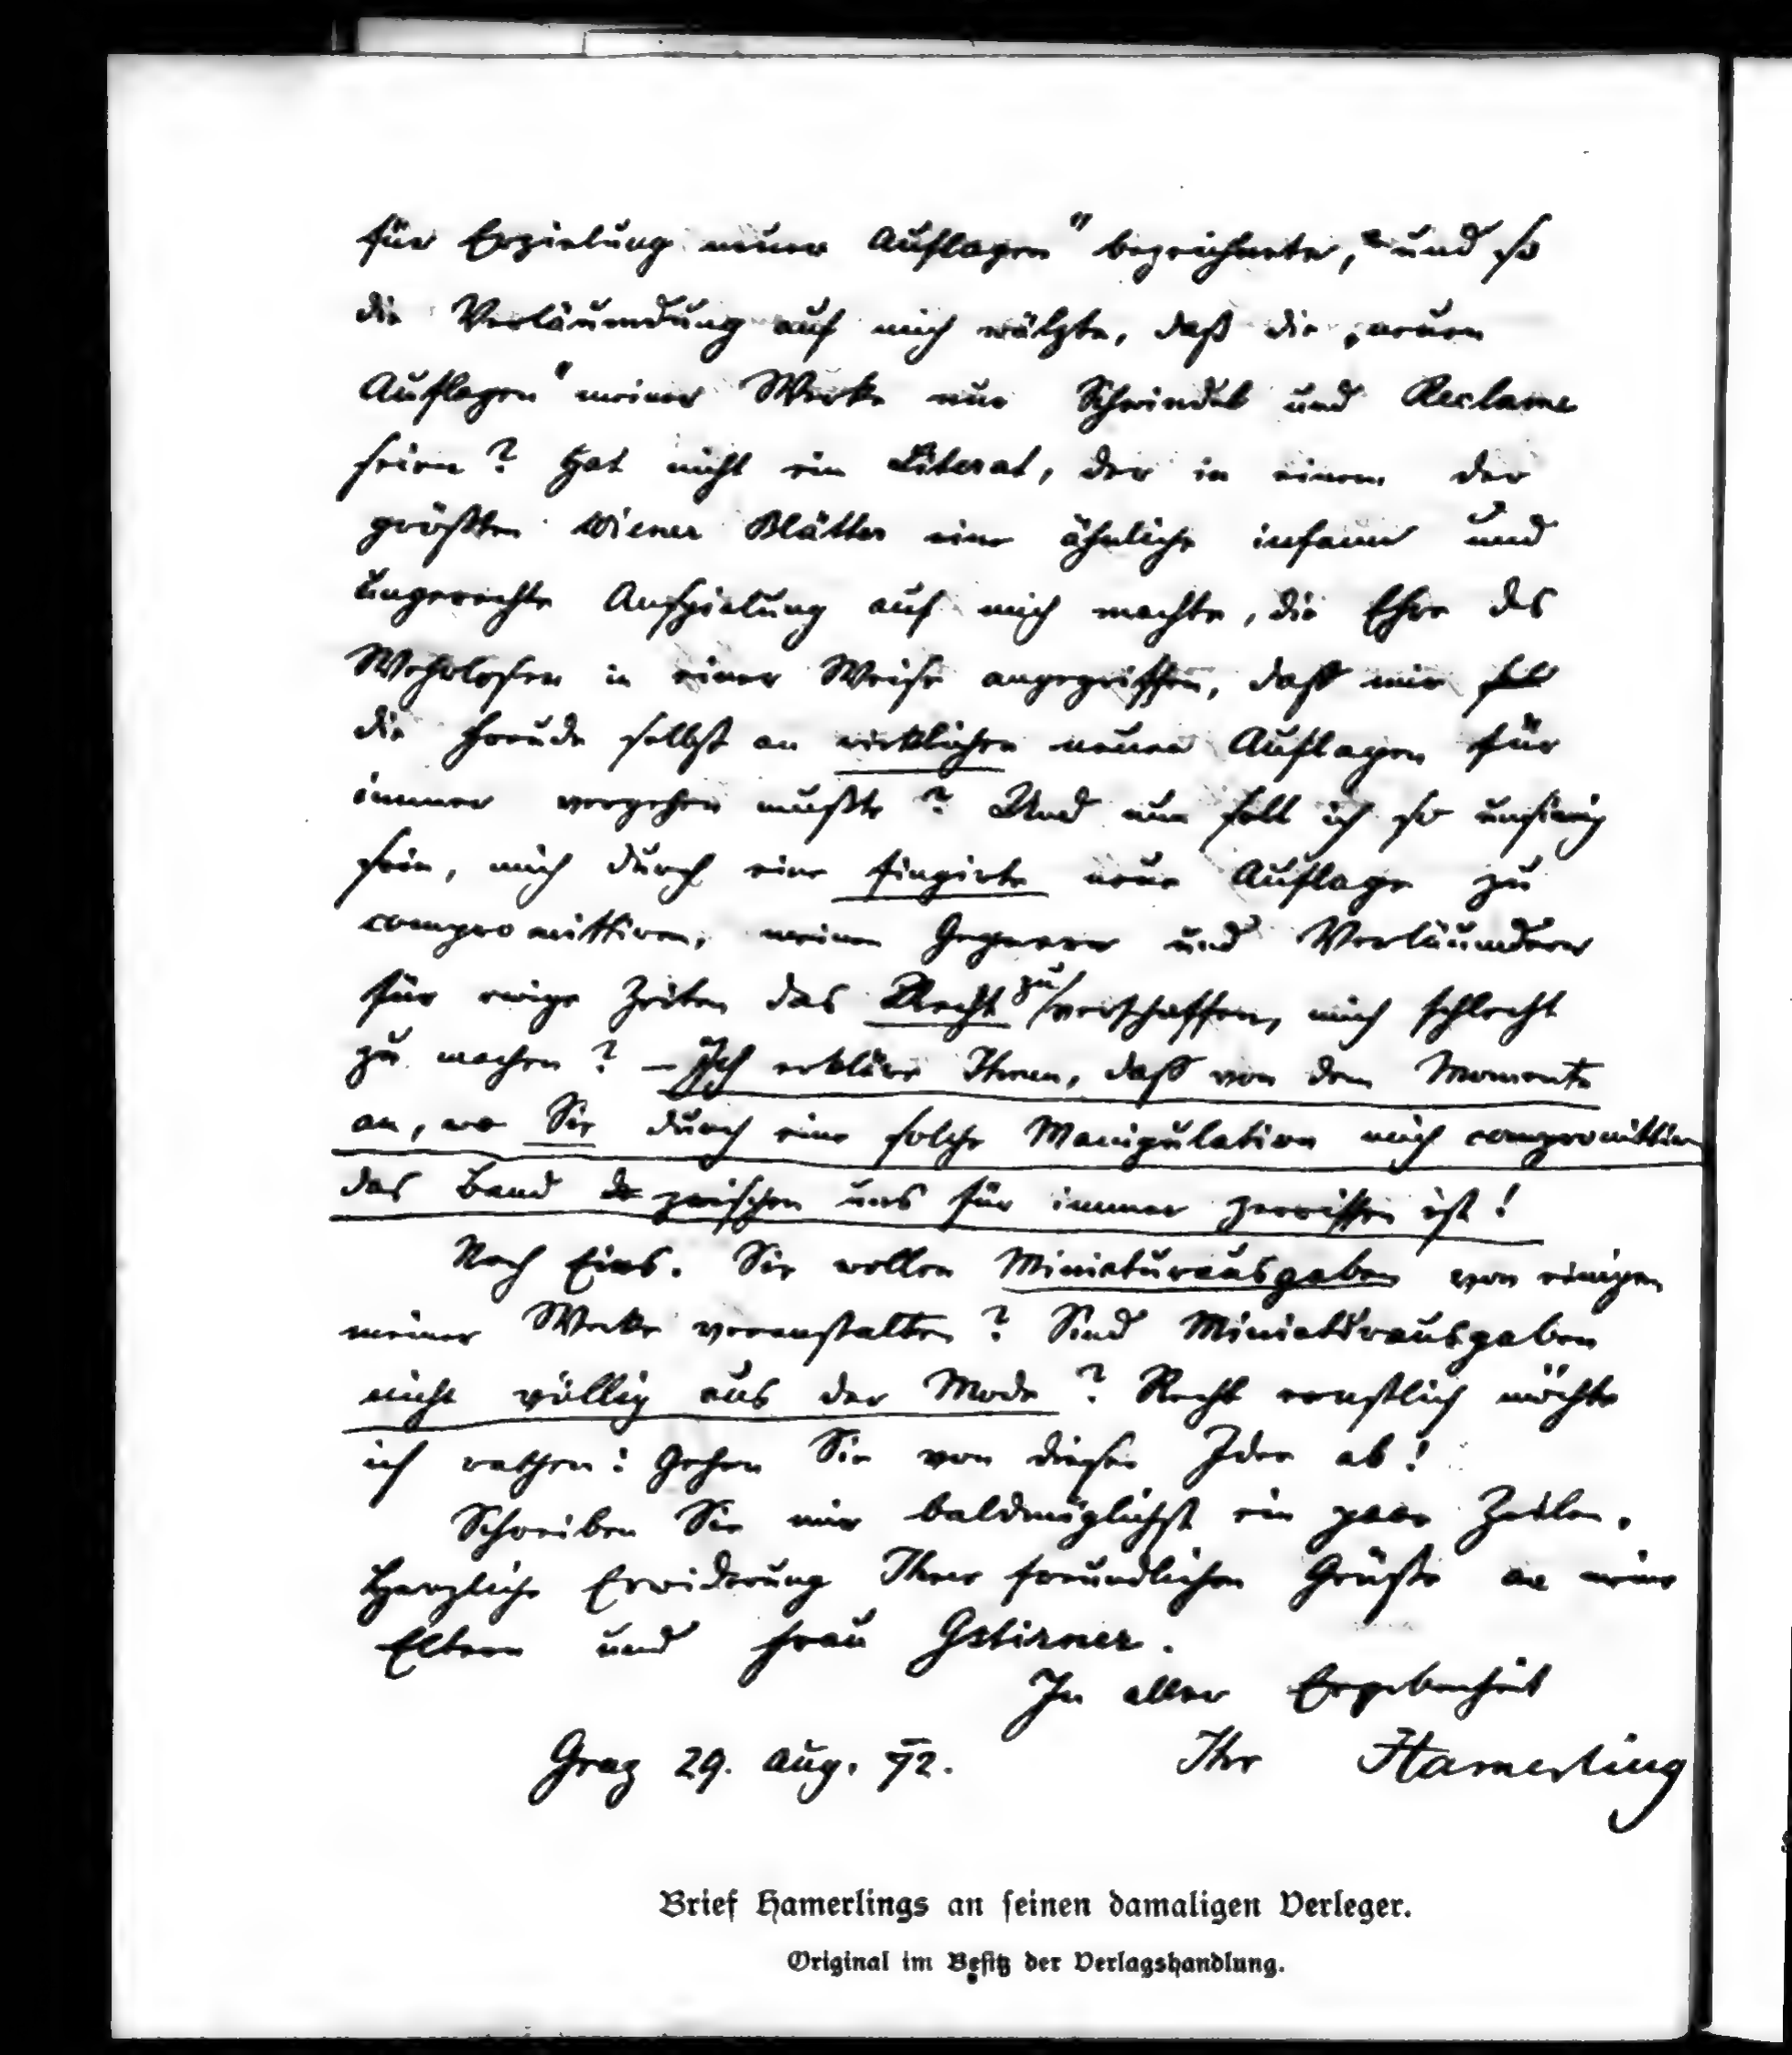 für Erzielung neuer Auflagen" bezeichnete, und so
die Verläumdung auf mich wälzte, daß die „neuen
Auflagen" meiner Werke nur Schwindel und Reclame
seien? Hat nicht ein Literat, der in einem der
größten Wiener Blätter eine ähnliche infame und
ungerechte Anspielung auf mich machte, die Ehre des
Wehrlosen in einer Weise angegriffen, daß mir
die Freude selbst an wirklichen neuen Auflagen für
immer vergehen mußte? Und nun soll ich so unsinnig
sein, mich durch eine fingirte neue Auflage zu
compromittiren, meinen Gegnern und Verläumdern
für ewige Zeiten das Recht zu verschaffen, mich schlecht
zu machen? – Ich erkläre Ihnen, daß von dem Momente
an, wo Sie durch eine solche Manipulation mich compromittiren
das Band zwischen uns für immer zerrissen ist!
Noch Eins. Sie wollen Miniaturausgaben von einigen
meiner Werke veranstalten? Sind Miniaturausgaben
nicht völlig aus der Mode? Recht ernstlich möchte
ich rathen: Gehen Sie von dieser Idee ab!
Schreiben Sie mir baldmöglichst ein paar Zeilen.
Herzliche Erwiderung Ihrer freundlichen Grüße an meine
Eltern und Frau Gstirner.
In aller Ergebenheit
Graz 29. Aug. 72. Ihr Hamerling
Brief Hamerlings an seinen damaligen Verleger.
Original im Besitz der Verlagshandlung.